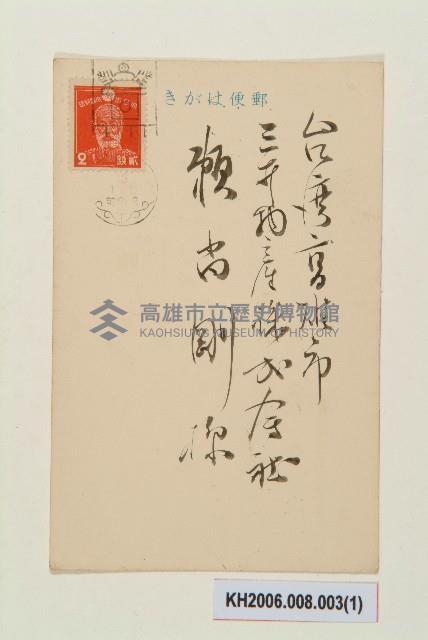 郵便はがき
台湾高雄市
三井物産株式会社
頼尚剛様
2
弐銭
高雄市立歷史博物館
KAOHSIUNG MUSEUM OF HISTORY
KH2006.008.003(1)